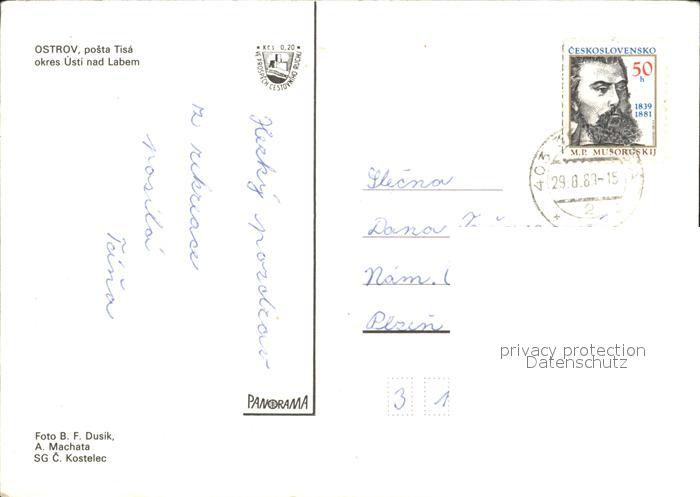 OSTROV, pošta Tisá
okres Ústí nad Labem
Kčs 0,20
VE PROSPĚCH CESTOVNÍHO RUCHU
Hezký pozdrav
z rekreace
posílá
Táňa
PANORAMA
Foto B. F. Dusík,
A. Machata
SG Č. Kostelec
ČESKOSLOVENSKO
50
h
1839
1881
M.P. MUSORGSKIJ
403
29.8.89-15
2
Slečna
Dana
Nám.
Plzeň
3 1
privacy protection
Datenschutz